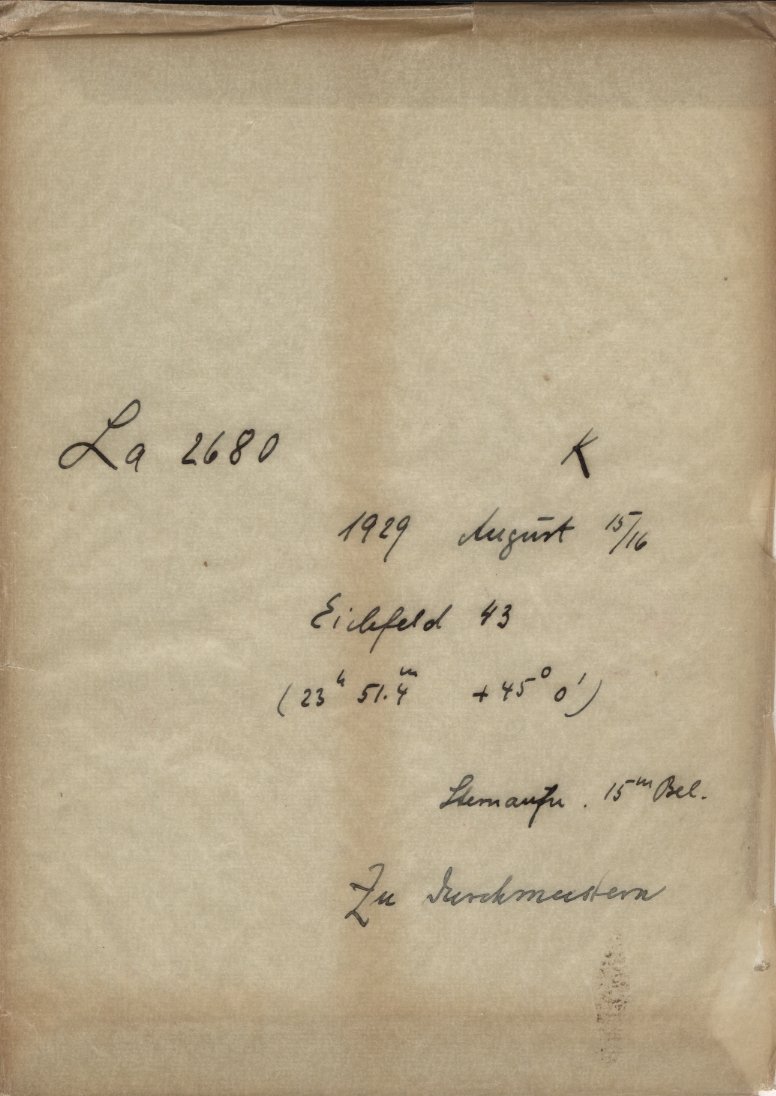 La 2680 K
1929 August 15/16
Eichfeld 43
(23ʰ 51.4ᵐ +45° 0')
Sternaufn. 15ᵐ Bel.
Zu durchmustern